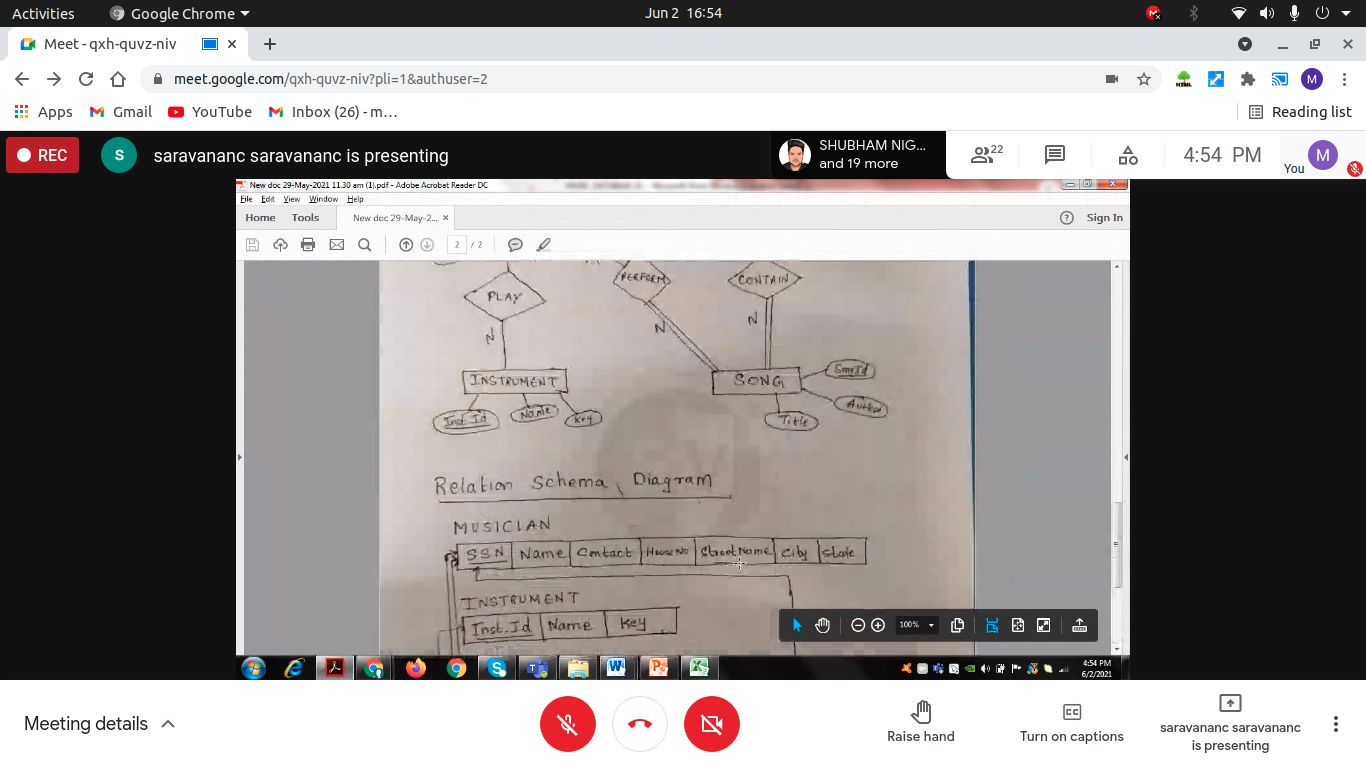 Activities Google Chrome Jun 2 16:54
Meet - qxh-quvz-niv
meet.google.com/qxh-quvz-niv?pli=1&authuser=2 HTML M
Apps Gmail YouTube Inbox (26) - m… Reading list
REC S saravananc saravananc is presenting SHUBHAM NIG... and 19 more 22 4:54 PM You M
New doc 29-May-2021 11.30 am (1).pdf - Adobe Acrobat Reader DC
File Edit View Window Help
Home Tools New doc 29-May-2... × Sign In
2 / 2
PERFORM CONTAIN
PLAY
N N N
INSTRUMENT SONG SongId
Inst.Id Name Key Title Author
Relation Schema Diagram
MUSICIAN
SSN Name Contact HouseNo StreetName City State
INSTRUMENT
Inst.Id Name Key
100%
4:54 PM
6/2/2021
Meeting details Raise hand Turn on captions saravananc saravananc
is presenting